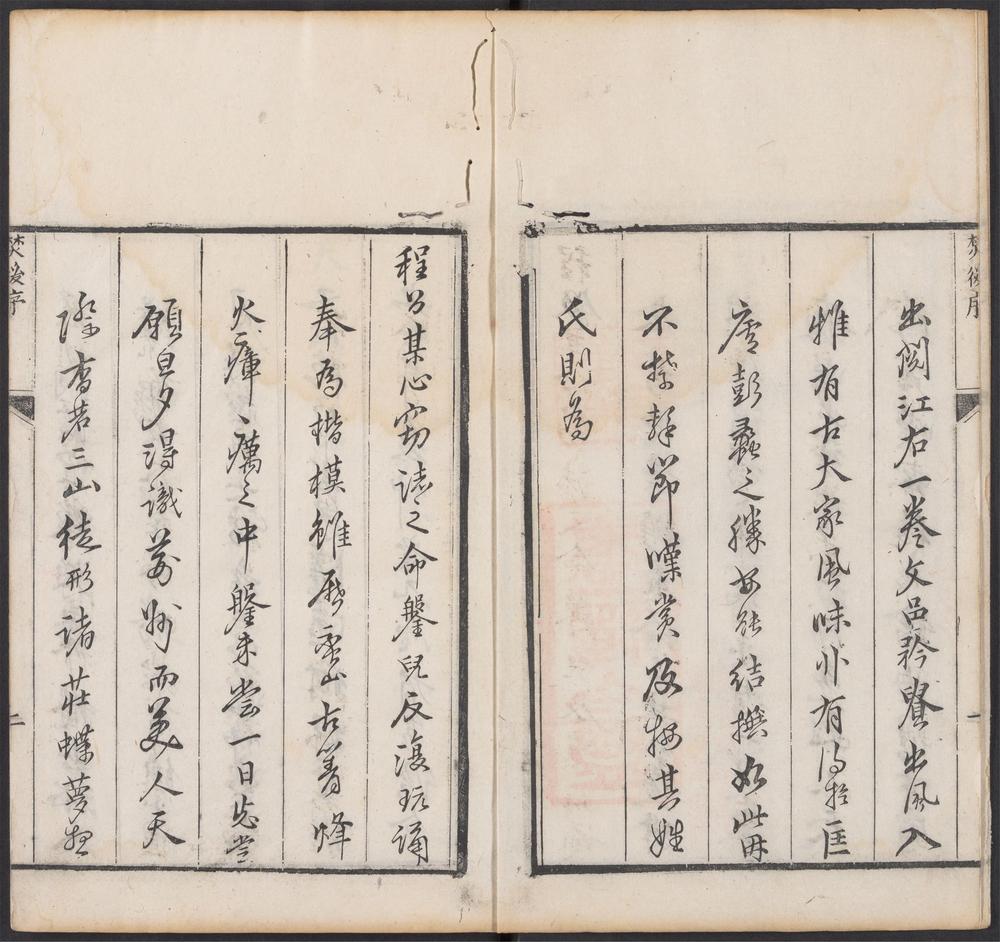 焚後序
一
出閱江右一卷文品矜貴出風入
雅有古大家風味非有得於匡
廬彭蠡之勝安能結撰如此毋
不禁擊節嘆賞及其姓
氏則為
程公某心竊誌之命鑒兒反復玩誦
奉為楷模雖歷山古箐烽
火瘴癘之中鑒未嘗一日忘嘗
願旦夕得識而美人天
際杳若三山徒形諸莊蝶夢想
焚後序
二